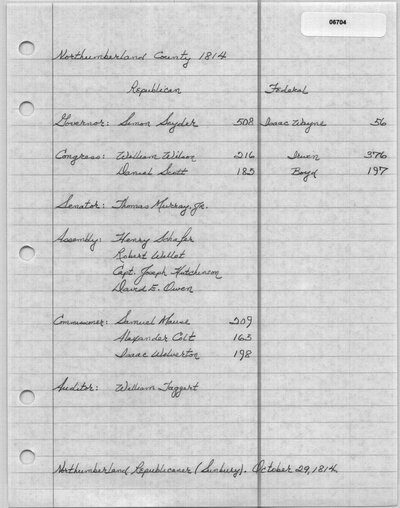 06704
Northumberland County 1814
Republican Federal
Governor: Simon Snyder 508 Isaac Wayne 56
Congress: William Wilson 216 Irwin 376
Daniel Scott 185 Boyd 197
Senator: Thomas Murray, Jr.
Assembly: Henry Schafer
Robert Willet
Capt. Joseph Hutchinson
David E. Owen
Commissioner: Samuel Mause 209
Alexander Colt 163
Isaac Wolverton 198
Auditor: William Taggert
Northumberland Republicaner (Sunbury). October 29, 1814